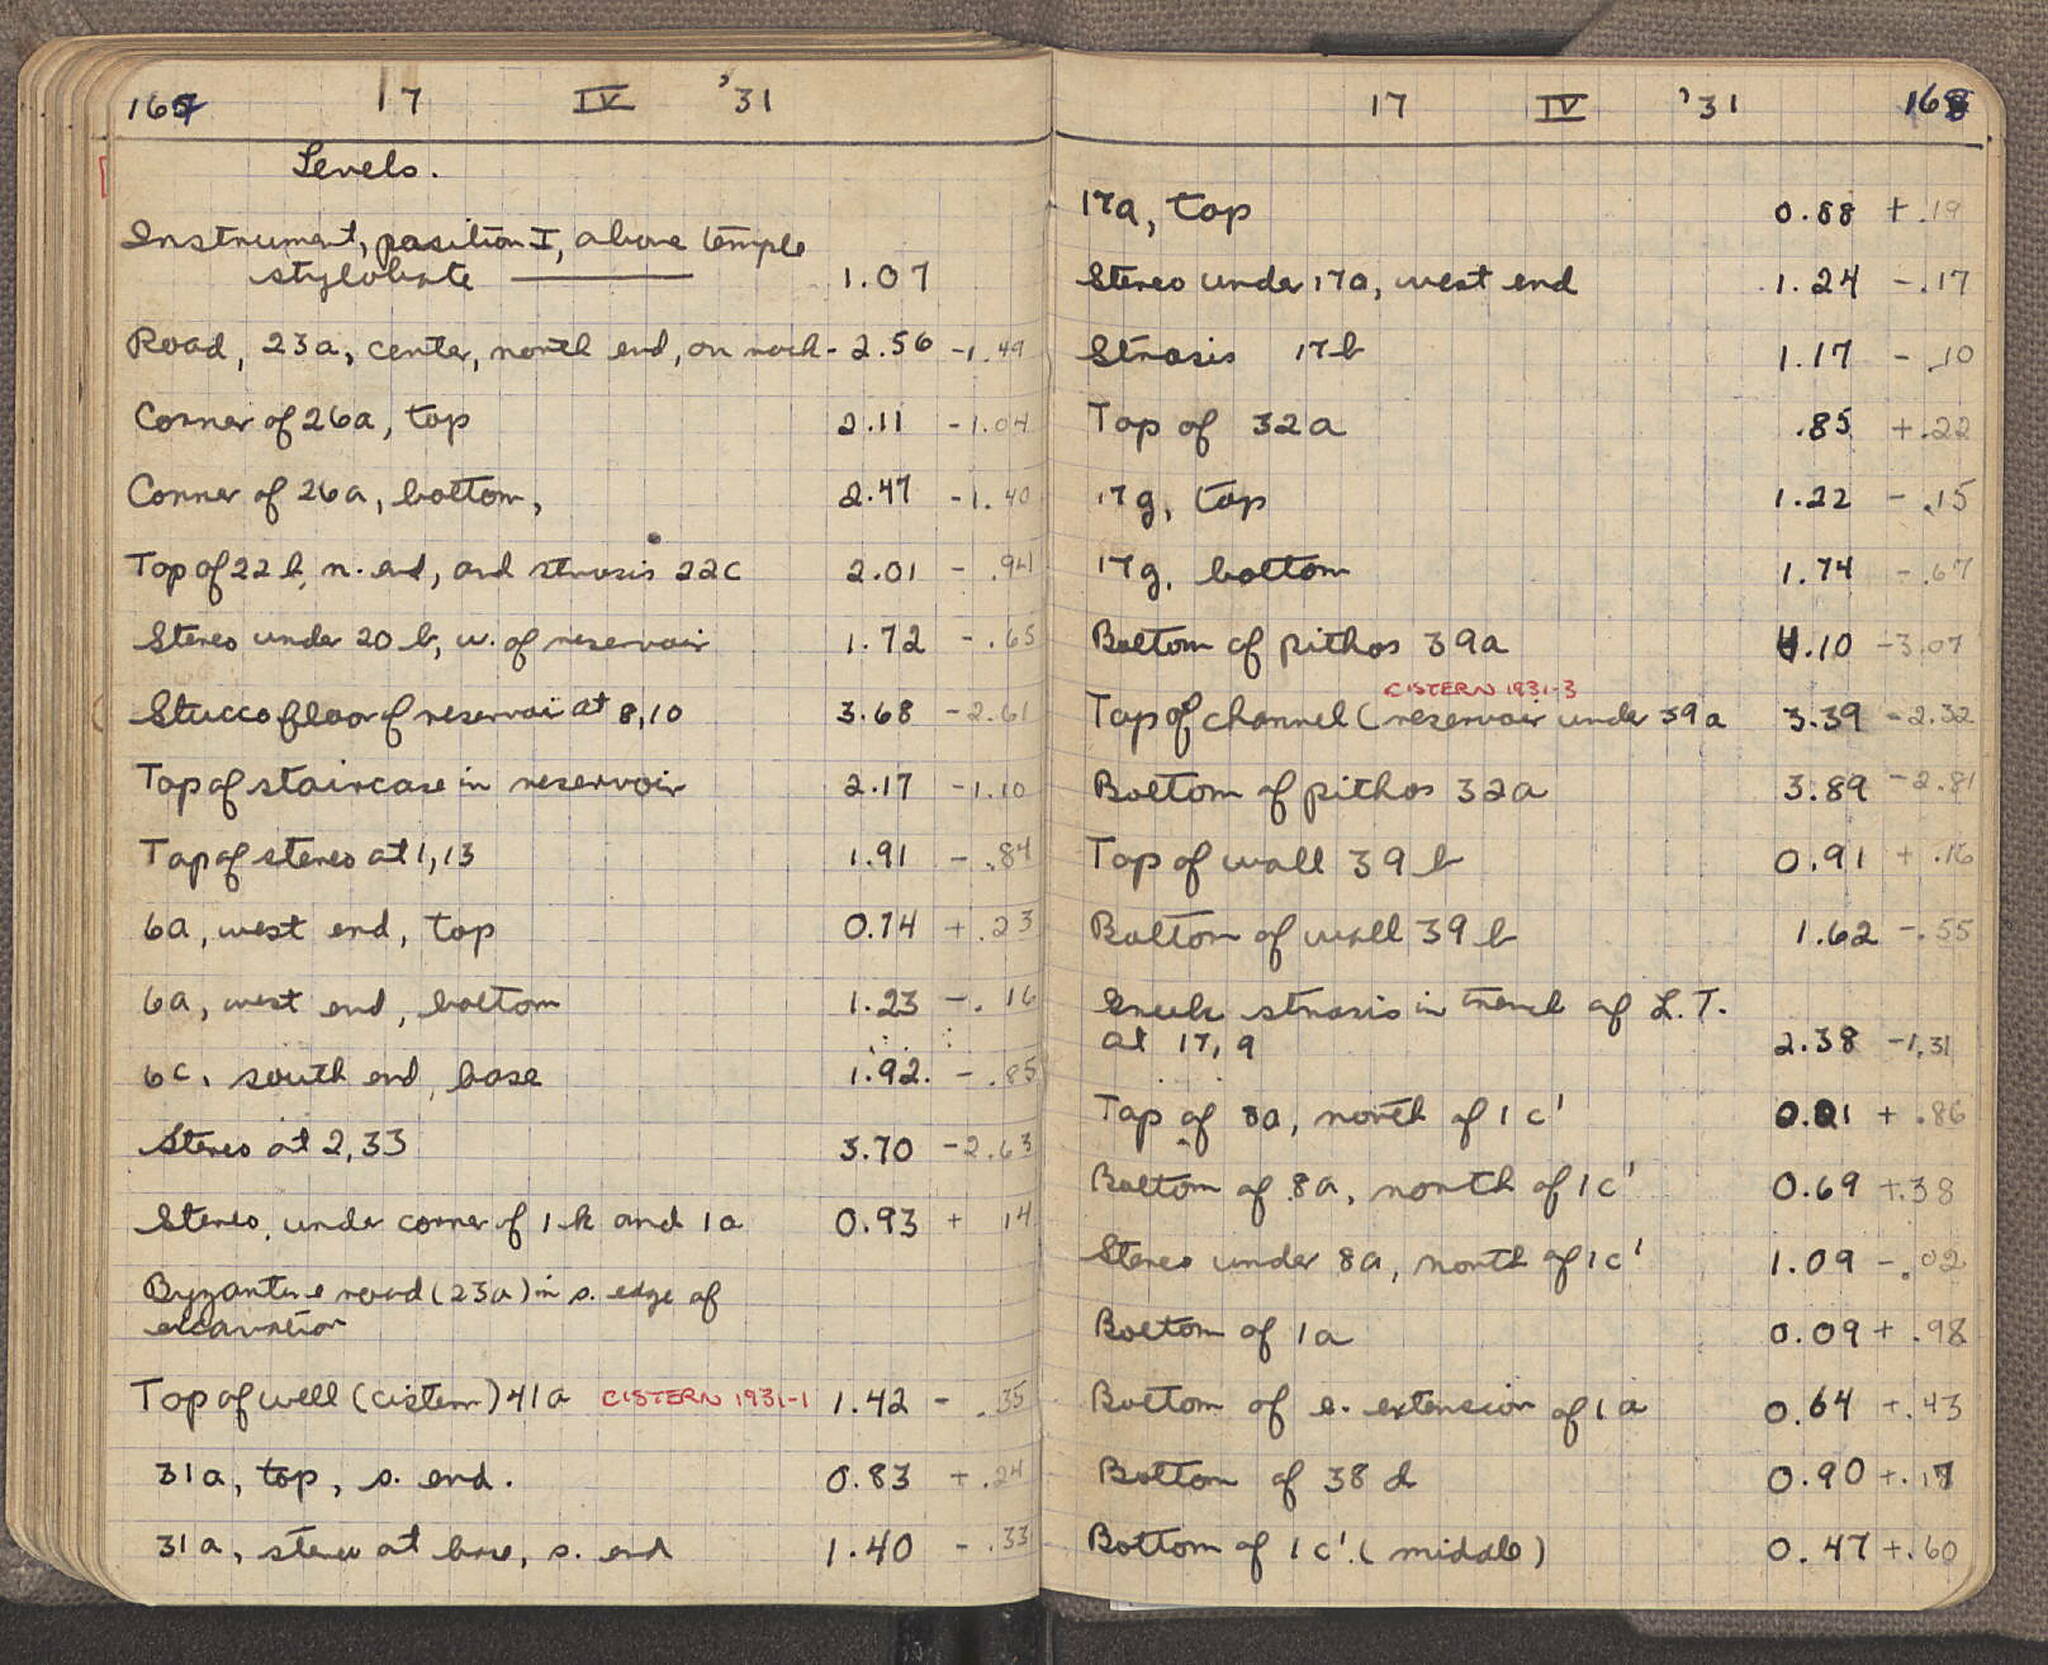 167 17 IV '31
Levels.
Instrument, position I, above temple
stylobate —— 1.07
Road, 23a, center, north end, on rock - 2.56 -1.49
Corner of 26a, top 2.11 -1.04
Corner of 26a, bottom, 2.47 -1.40
Top of 22b, n. end, and strosis 22c 2.01 - .94
Stereo under 20b, w. of reservoir 1.72 - .65
Stucco floor of reservoir at 8,10 3.68 -2.61
Top of staircase in reservoir 2.17 -1.10
Top of stereo at 1,13 1.91 - .84
6a, west end, top 0.74 + .23
6a, west end, bottom 1.23 - .16
6c, south end, base 1.92. - .85
Stereo at 2,33 3.70 -2.63
Stereo, under corner of 1k and 1a 0.93 + 14
Byzantine road (23a) in s. edge of
excavation
Top of well (cistern) 41a CISTERN 1931-1 1.42 - .35
31a, top, s. end. 0.83 + .24
31a, stereo at base, s. end 1.40 - .33
17 IV '31 168
17a, top 0.88 + .19
Stereo under 17a, west end 1.24 - .17
Strosis 17b 1.17 - .10
Top of 32a .85 + .22
17g, top 1.22 - .15
17g, bottom 1.74 - .67
Bottom of pithos 39a 4.10 -3.07
CISTERN 1931-3
Top of channel (reservoir under 39a 3.39 -2.32
Bottom of pithos 32a 3.89 -2.81
Top of wall 39b 0.91 + .16
Bottom of wall 39b 1.62 - .55
Greek strosis in trench of L.T.
at 17, 9 2.38 -1.31
Top of 8a, north of 1c' 0.21 + .86
Bottom of 8a, north of 1c' 0.69 +.38
Stereo under 8a, north of 1c' 1.09 - .02
Bottom of 1a 0.09 + .98
Bottom of e. extension of 1a 0.64 +.43
Bottom of 38d 0.90 +.17
Bottom of 1c' (middle) 0.47 +.60